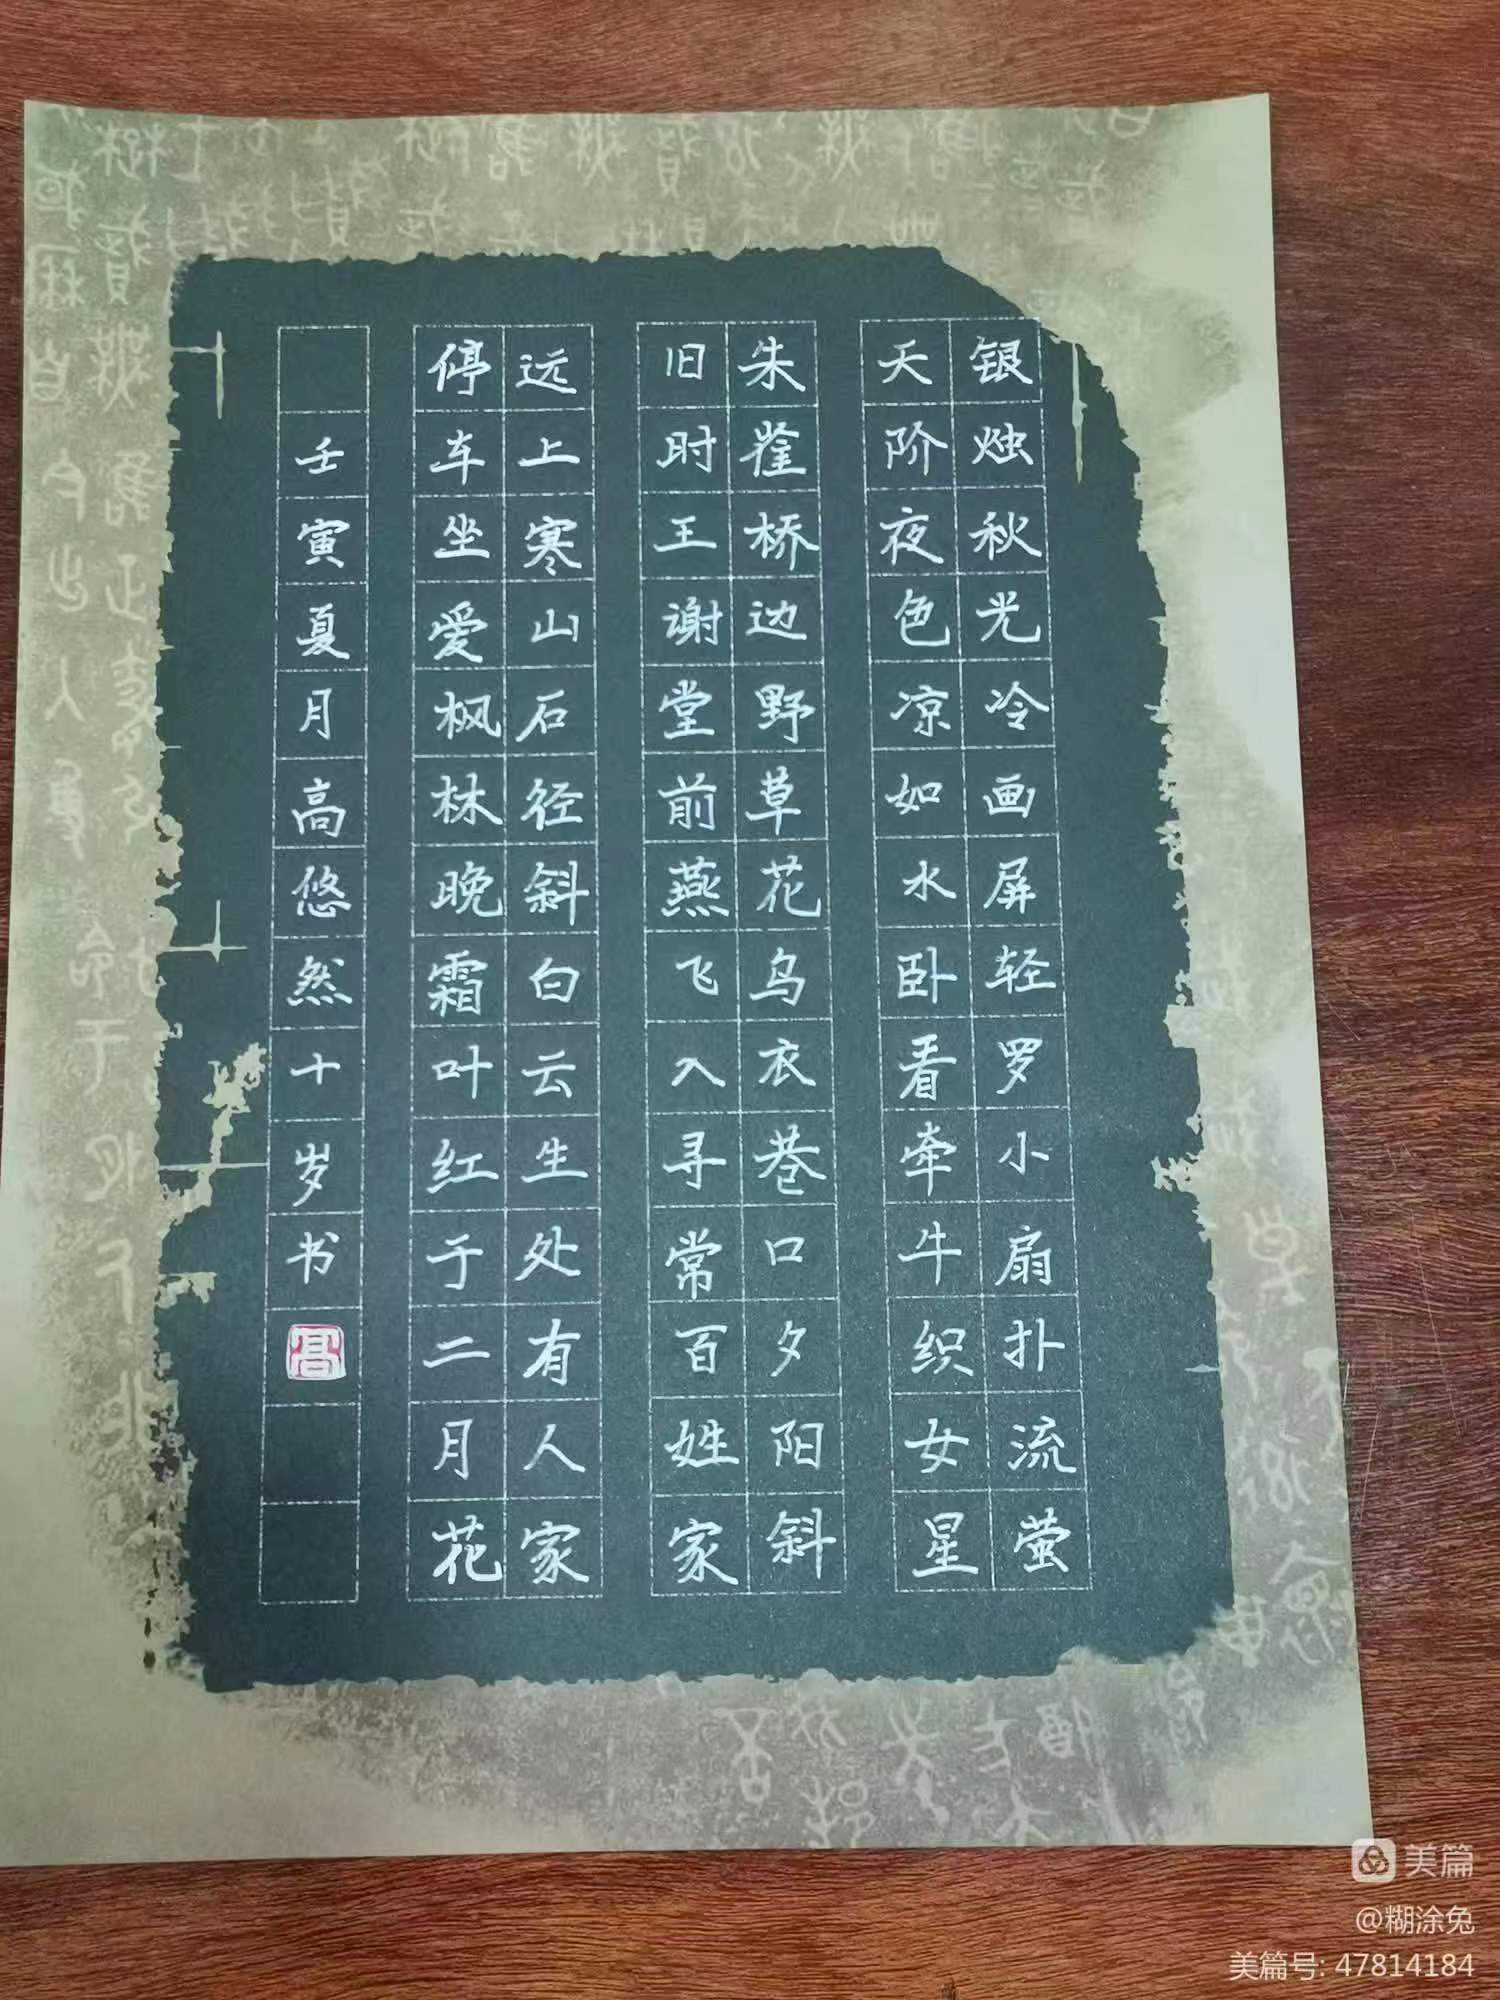 银烛秋光冷画屏轻罗小扇扑流萤
天阶夜色凉如水卧看牵牛织女星
朱雀桥边野草花乌衣巷口夕阳斜
旧时王谢堂前燕飞入寻常百姓家
远上寒山石径斜白云生处有人家
停车坐爱枫林晚霜叶红于二月花
壬寅夏月高悠然十岁书
高
美篇
@糊涂兔
美篇号: 47814184